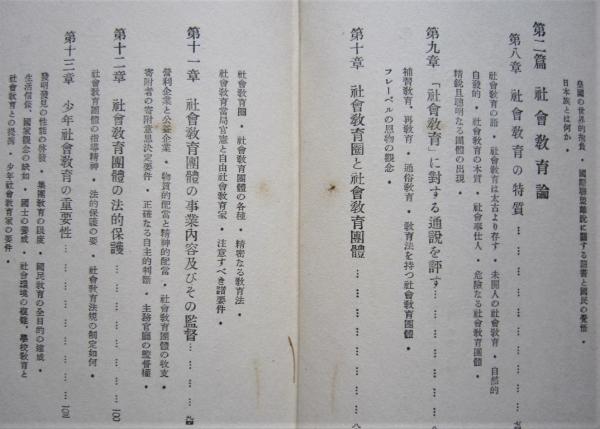 皇國の世界的抱負・國際聯盟離脱に關する詔書と國民の覺悟・
日本族とは何か・
第二篇 社會教育論
第八章 社會教育の特質
社會教育の語・社會教育は太古より存す・未開人の社會教育・自然的
自發的・社會教育の本質・社會事仕人・危險なる社會教育團體・
精銳且聰明なる團體の出現・
第九章 「社會教育」に對する通說を評す
補習教育、再教育・通俗教育・教育法を持つ社會教育團體・
フレーベルの恩物の觀念・
第十章 社會教育圈と社會教育團體
社會教育圈・社會教育團體の各種・精密なる教育法・
社會教育當局官憲と自由社會教育家・注意すべき諸要件・
第十一章 社會教育團體の事業內容及びその監督
營利企業と公益企業・物質的配當と精神的配當・社會教育團體の收支・
寄附者の寄附意思決定要件・正確なる自主的判斷・主務官廳の監督權・
第十二章 社會教育團體の法的保護 100
社會教育團體の指導精神・法的保護の要・社會教育法規の制定如何・
第十三章 少年社會教育の重要性 10三
發明發見の性能の啓發・集團教育の限度・國民教育の全目的の達成・
生活信條、國家觀念の缺如・國士の養成・社會環境の複雜、學校教育と
社會教育との提携・少年社會教育家の要件・